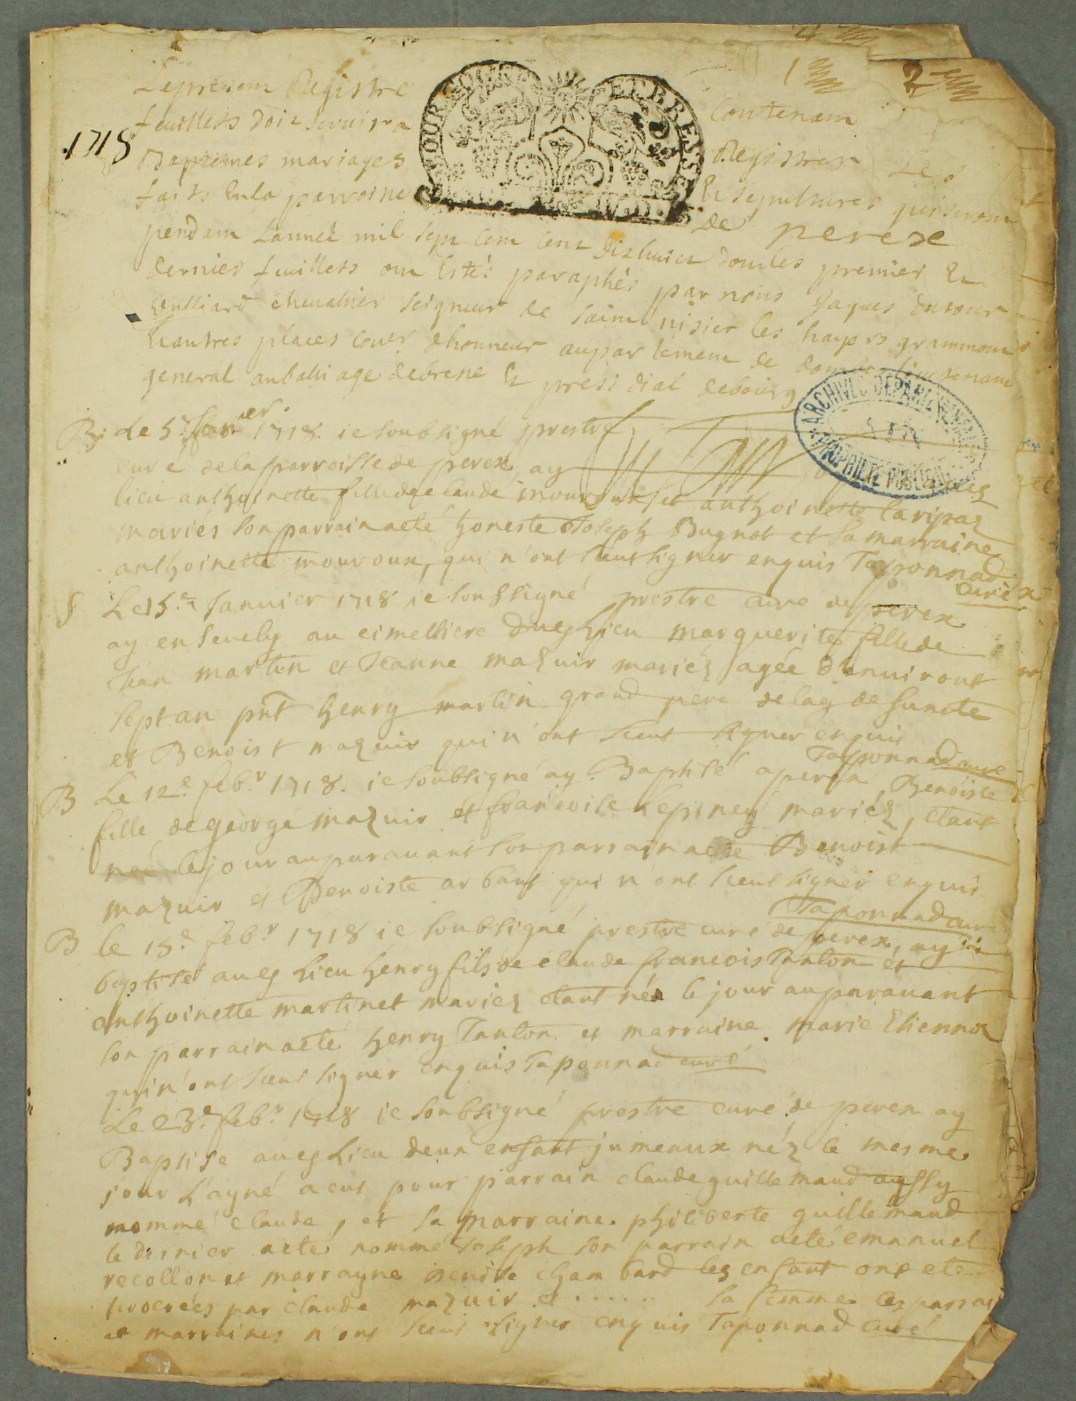 1 2
Le present Registre contenant
feuillets doit servir a Registrer Les
1718
Baptemes mariages Et sepultures qui seront
faits en la parroisse de perex
pendant Lannée mil sept cent dixhuict dont les premier Et
dernier feuillets ont Estés paraphés par nous Jaques
chevalier seigneur de saint nisier les
Et autres places cons. dhonneur au parlement de Lieutenant
general au balliage de bresse Et presidial de bourg
B. Le 5e Janer. 1718. ie soubsigné prestre
curé de la parroisse de perex ay
lieu anthoinette fille de claude mouroux et anthoinette
mariés son parrain a eté honeste Joseph Bugnot et sa marraine
anthoinette mouroux, qui n'ont sceut signer enquis Taponnad
curé
S Le 15e Janvier 1718 ie soussigné prestre curé de perex
ay ensevely au cimettiere dud. lieu marguerite fille de
Jean martin et Jeanne mazuir mariéz agée d'environt
sept an pnt henry martin grand pere de lad. defuncte
et Benoist mazuir qui n'ont sceut signer enquis
Taponnad curé
B Le 12e febr 1718. ie soubsigné ay Baptisé a perex, Benoiste
fille de george mazuir et francoise Lepiney mariéz, etant
neé le jour auparavant son parrain a eté Benoist
mazuir et Benoiste arbant qui n'ont sceut signer enquis
Taponnad curé
B le 15e febr 1718 ie soubsigné prestre curé de perex, ay
baptisé aud. Lieu henry fils de claude francois Tanton et
anthoinette martinet mariez etant née le jour auparavant
son parrain a eté henry Tanton et marraine. marie Etiennon
qui n'ont sceut signer enquis Taponnad curé
Le 23e febr 1718 ie soubsigné prestre curé de perex ay
Baptisé aud. Lieu deux enfant jumeaux néz le mesme
jour L'ayné a eut pour parrain claude guillemaud
nommé claude, et sa marraine. philiberte guillemaud
le dernier a eté nommé Joseph son parrain a eté emanuel
recollon et marrayne chambard les enfant ont eté
procreés par claude mazuir et ....... sa femme les parrai
et marraines n'ont sceut signer enquis Taponnad curé
ARCHIVES DEPARTEMENTALES
PROPRIÉTÉ PUBLIQUE